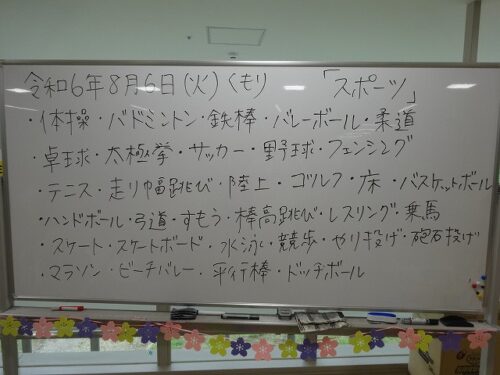 令和6年8月6日(火)くもり 「スポーツ」
・体操・バドミントン・鉄棒・バレーボール・柔道
・卓球・太極拳・サッカー・野球・フェンシング
・テニス・走り幅跳び・陸上・ゴルフ・床・バスケットボール
・ハンドボール・弓道・すもう・棒高跳び・レスリング・乗馬
・スケート・スケートボード・水泳・競歩・やり投げ・砲石投げ
・マラソン・ビーチバレー・平行棒・ドッチボール